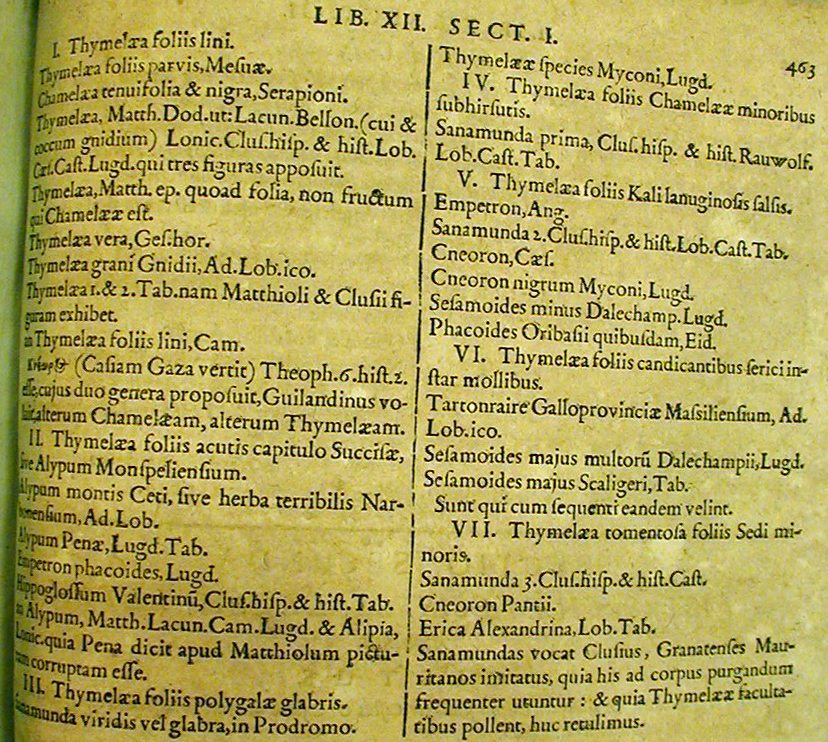 LIB. XII. SECT. I.
463
I. Thymelæa foliis lini.
Thymelæa foliis parvis, Mesuæ.
Chamelæa tenuifolia & nigra, Serapioni.
Thymelæa, Matth. Dod. ut: Lacun. Bellon. (cui &
coccum gnidium) Lonic. Clus. hisp. & hist. Lob.
Cæs. Cast. Lugd. qui tres figuras apposuit.
Thymelæa, Matth. ep. quoad folia, non fructum
qui Chamelææ est.
Thymelæa vera, Ges. hor.
Thymelæa grani Gnidii, Ad. Lob. ico.
Thymelæa 1. & 2. Tab. nam Matthioli & Clusii fi-
guram exhibet.
an Thymelæa foliis lini, Cam.
(Casiam Gaza vertit) Theoph. 6. hist. 2.
esse, cujus duo genera proposuit, Guilandinus vo-
luit, alterum Chamelæam, alterum Thymelæam.
II. Thymelæa foliis acutis capitulo Succisæ,
sive Alypum Monspeliensium.
Alypum montis Ceti, sive herba terribilis Nar-
bonensium, Ad. Lob.
Alypum Penæ, Lugd. Tab.
Empetron phacoides, Lugd.
Hippoglossum Valentinũ, Clus. hisp. & hist. Tab.
an Alypum, Matth. Lacun. Cam. Lugd. & Alipia,
Lonic. quia Pena dicit apud Matthiolum pictu-
ram corruptam esse.
III. Thymelæa foliis polygalæ glabris.
Sanamunda viridis vel glabra, in Prodromo.
Thymelææ species Myconi, Lugd.
IV. Thymelæa foliis Chamelææ minoribus
subhirsutis.
Sanamunda prima, Clus. hisp. & hist. Rauwolf.
Lob. Cast. Tab.
V. Thymelæa foliis Kali lanuginosis salsis.
Empetron, Ang.
Sanamunda 2. Clus. hisp. & hist. Lob. Cast. Tab.
Cneoron, Cæs.
Cneoron nigrum Myconi, Lugd.
Sesamoides minus Dalechamp. Lugd.
Phacoides Oribasii quibusdam, Eid.
VI. Thymelæa foliis candicantibus serici in-
star mollibus.
Tartonraire Galloprovinciæ Massiliensium, Ad.
Lob. ico.
Sesamoides majus multorũ Dalechampii, Lugd.
Sesamoides majus Scaligeri, Tab.
Sunt qui cum sequenti eandem velint.
VII. Thymelæa tomentosa foliis Sedi mi-
noris.
Sanamunda 3. Clus. hisp. & hist. Cast.
Cneoron Pantii.
Erica Alexandrina, Lob. Tab.
Sanamundas vocat Clusius, Granatenses Mau-
ritanos imitatus, quia his ad corpus purgandum
frequenter utuntur : & quia Thymelææ faculta-
tibus pollent, huc retulimus.